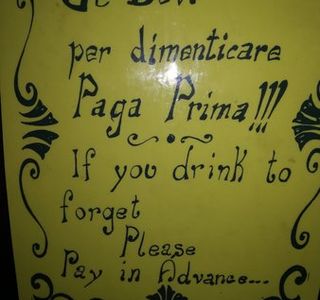 per dimenticare
Paga Prima!!!
If you drink to
forget
Please
Pay in Advance....